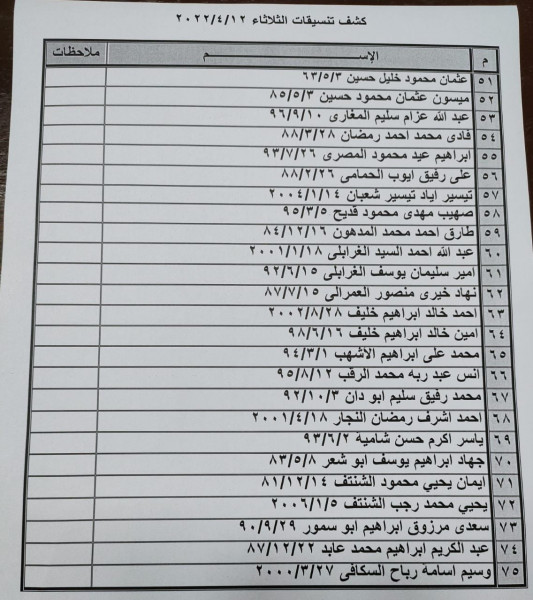 كشف تنسيقات الثلاثاء ٢٠٢٢/٤/١٢
م الإســـم ملاحظات
٥١ عثمان محمود خليل حسين ٦٣/٥/٣
٥٢ ميسون عثمان محمود حسين ٨٥/٥/٣
٥٣ عبد الله عزام سليم المغارى ٩٦/٩/١٠
٥٤ فادى محمد احمد رمضان ٨٨/٣/٢٨
٥٥ ابراهيم عيد محمود المصرى ٩٣/٧/٢٦
٥٦ على رفيق ايوب الحمامى ٨٨/٢/٢٦
٥٧ تيسير اياد تيسير شعبان ٢٠٠٤/١/١٤
٥٨ صهيب مهدى محمود قديح ٩٥/٣/٥
٥٩ طارق احمد محمد المدهون ٨٤/١٢/١٦
٦٠ عبد الله احمد السيد الغرابلى ٢٠٠١/١/١٨
٦١ امير سليمان يوسف الغرابلى ٩٢/٦/١٥
٦٢ نهاد خيرى منصور العمرالى ٨٧/٧/١٥
٦٣ احمد خالد ابراهيم خليف ٢٠٠٢/٨/٢٨
٦٤ امين خالد ابراهيم خليف ٩٨/٦/١٦
٦٥ محمد على ابراهيم الاشهب ٩٤/٣/١
٦٦ انس عبد ربه محمد الرقب ٩٥/٨/١٢
٦٧ محمد رفيق سليم ابو دان ٩٢/١٠/٣
٦٨ احمد اشرف رمضان النجار ٢٠٠١/٤/١٨
٦٩ ياسر اكرم حسن شامية ٩٣/٦/٢
٧٠ جهاد ابراهيم يوسف ابو شعر ٨٣/٥/٨
٧١ ايمان يحيي محمود الشنتف ٨١/١٢/١٤
٧٢ يحيي محمد رجب الشنتف ٢٠٠٦/١/٥
٧٣ سعدى مرزوق ابراهيم ابو سمور ٩٠/٩/٢٩
٧٤ عبد الكريم ابراهيم محمد عابد ٨٧/١٢/٢٢
٧٥ وسيم اسامة رباح السكافى ٢٠٠٠/٣/٢٧